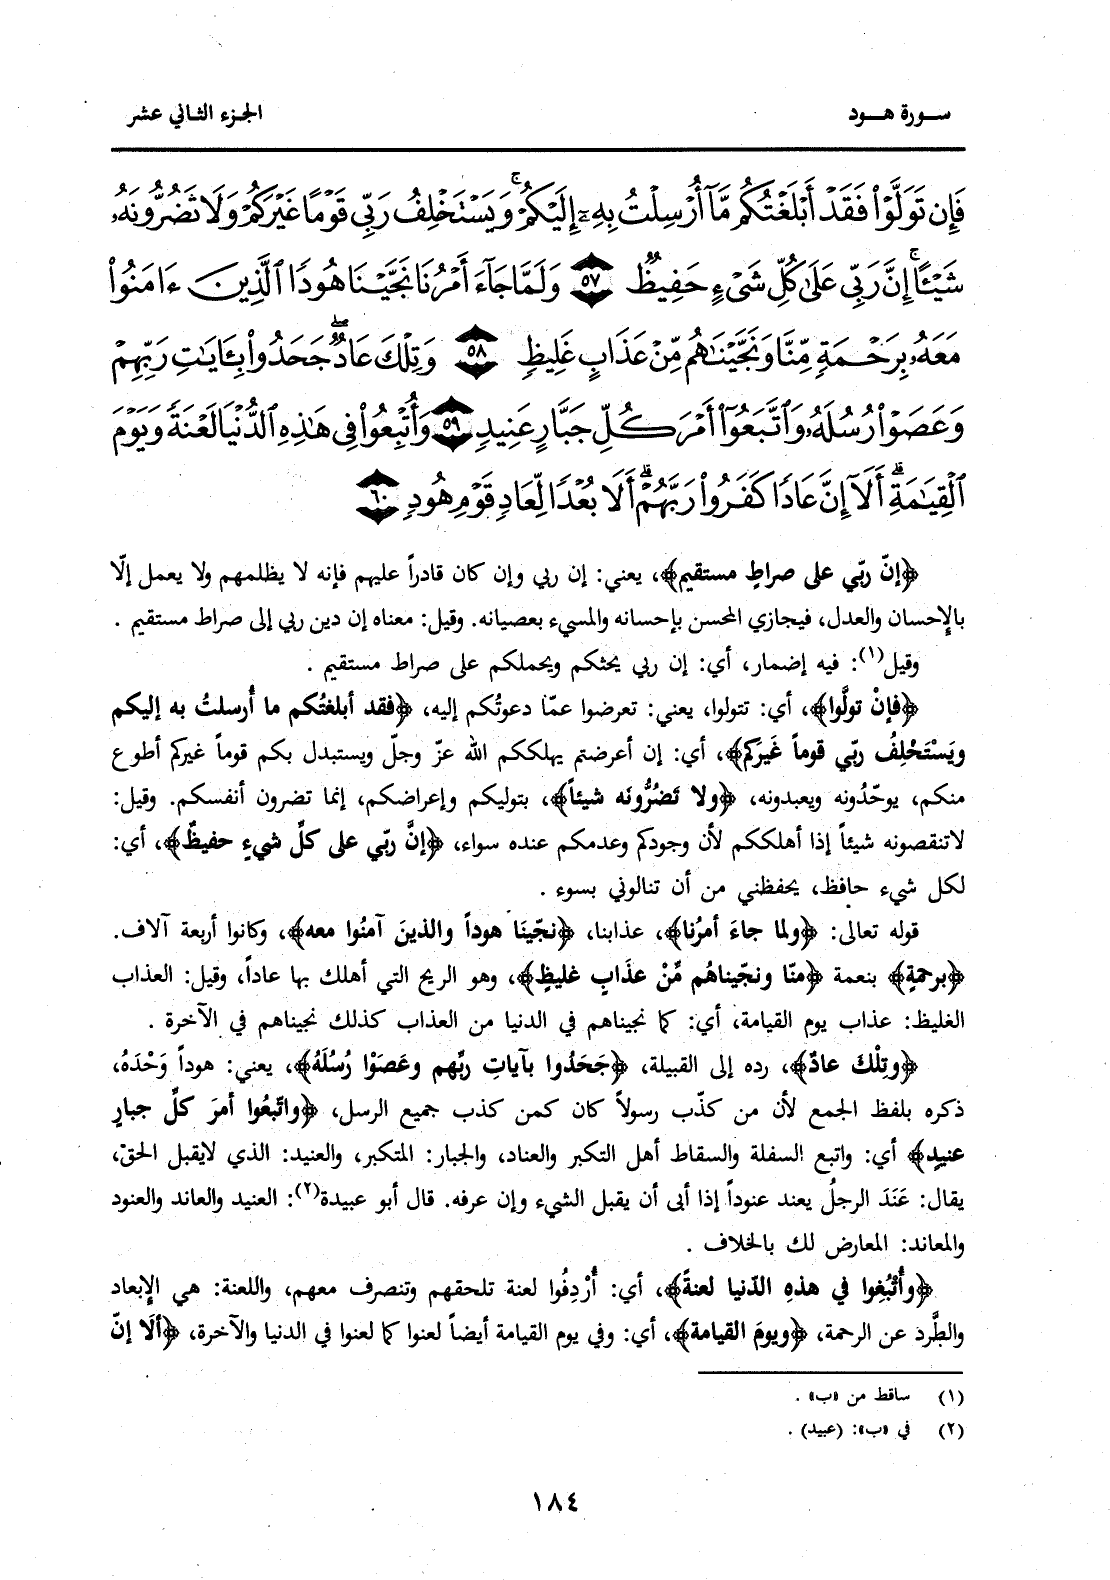 سورة هود
الجزء الثاني عشر
فَإِن تَوَلَّوْا۟ فَقَدْ أَبْلَغْتُكُم مَّآ أُرْسِلْتُ بِهِۦٓ إِلَيْكُمْ ۚ وَيَسْتَخْلِفُ رَبِّى قَوْمًا غَيْرَكُمْ وَلَا تَضُرُّونَهُۥ
شَيْـًٔا ۚ إِنَّ رَبِّى عَلَىٰ كُلِّ شَىْءٍ حَفِيظٌ ٥٧ وَلَمَّا جَآءَ أَمْرُنَا نَجَّيْنَا هُودًا وَٱلَّذِينَ ءَامَنُوا۟
مَعَهُۥ بِرَحْمَةٍ مِّنَّا وَنَجَّيْنَٰهُم مِّنْ عَذَابٍ غَلِيظٍ ٥٨ وَتِلْكَ عَادٌ ۖ جَحَدُوا۟ بِـَٔايَٰتِ رَبِّهِمْ
وَعَصَوْا۟ رُسُلَهُۥ وَٱتَّبَعُوٓا۟ أَمْرَ كُلِّ جَبَّارٍ عَنِيدٍ ٥٩ وَأُتْبِعُوا۟ فِى هَٰذِهِ ٱلدُّنْيَا لَعْنَةً وَيَوْمَ
ٱلْقِيَٰمَةِ ۗ أَلَآ إِنَّ عَادًا كَفَرُوا۟ رَبَّهُمْ ۗ أَلَا بُعْدًا لِّعَادٍ قَوْمِ هُودٍ ٦٠
﴿إنّ ربّي على صراطٍ مستقيم﴾، يعني: إن ربي وإن كان قادراً عليهم فإنه لا يظلمهم ولا يعمل إلّا
بالإحسان والعدل، فيجازي المحسن بإحسانه والمسيء بعصيانه. وقيل: معناه إن دين ربي إلى صراط مستقيم .
وقيل(١): فيه إضمار، أي: إن ربي يحثكم ويحملكم على صراط مستقيم .
﴿فإنْ تولَّوا﴾، أي: تتولوا، يعني: تعرضوا عمّا دعوتُكم إليه، ﴿فقد أبلغتُكم ما أُرسلتُ به إليكم
ويَسْتَخْلِفُ ربّي قوماً غَيرَكم﴾، أي: إن أعرضتم يهلككم الله عزّ وجلّ ويستبدل بكم قوماً غيركم أطوع
منكم، يوحّدُونه ويعبدونه، ﴿ولا تَضُرُّونَه شيئاً﴾، بتوليكم وإعراضكم، إنما تضرون أنفسكم. وقيل:
لاتنقصونه شيئاً إذا أهلككم لأن وجودكم وعدمكم عنده سواء، ﴿إنَّ ربّي على كلِّ شيءٍ حفيظٌ﴾، أي:
لكل شيء حافظ، يحفظني من أن تنالوني بسوء .
قوله تعالى: ﴿ولما جاءَ أمرُنا﴾، عذابنا، ﴿نجّينَا هوداً والذينَ آمنُوا معه﴾، وكانوا أربعة آلاف.
﴿برحمةٍ﴾ بنعمة ﴿منّا ونجّيناهُم مِّنْ عذَابٍ غليظٍ﴾، وهو الريح التي أهلك بها عاداً، وقيل: العذاب
الغليظ: عذاب يوم القيامة، أي: كما نجيناهم في الدنيا من العذاب كذلك نجيناهم في الآخرة .
﴿وتِلْكَ عادٌ﴾، رده إلى القبيلة، ﴿جَحَدُوا بآياتِ ربِّهم وعَصَوْا رُسُلَهُ﴾، يعني: هوداً وَحْدَهُ،
ذكره بلفظ الجمع لأن من كذّب رسولاً كان كمن كذب جميع الرسل، ﴿واتّبعُوا أمرَ كلِّ جبارٍ
عنيدٍ﴾ أي: واتبع السفلة والسقاط أهل التكبر والعناد، والجبار: المتكبر، والعنيد: الذي لايقبل الحق،
يقال: عَنَدَ الرجلُ يعند عنوداً إذا أبى أن يقبل الشيء وإن عرفه. قال أبو عبيدة(٢): العنيد والعاند والعنود
والمعاند: المعارض لك بالخلاف .
﴿وأُتْبِعُوا في هذهِ الدّنيا لعنةً﴾، أي: أُرْدِفُوا لعنة تلحقهم وتنصرف معهم، واللعنة: هي الإبعاد
والطَّرد عن الرحمة، ﴿ويومَ القيامة﴾، أي: وفي يوم القيامة أيضاً لعنوا كما لعنوا في الدنيا والآخرة، ﴿ألَا إنّ
(١) ساقط من «ب» .
(٢) في «ب»: (عبيد) .
١٨٤